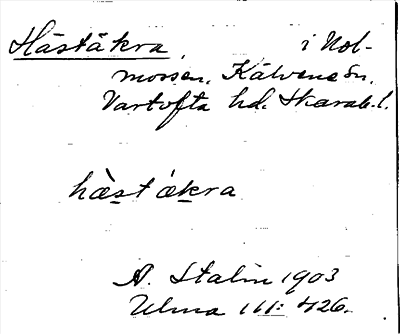 Häståkra, i Nol-
mossen, Kälvene sn,
Vartofta hd. Skarab. l.
hæst åkra
A. Stalin 1903
Ulma 111: 426.